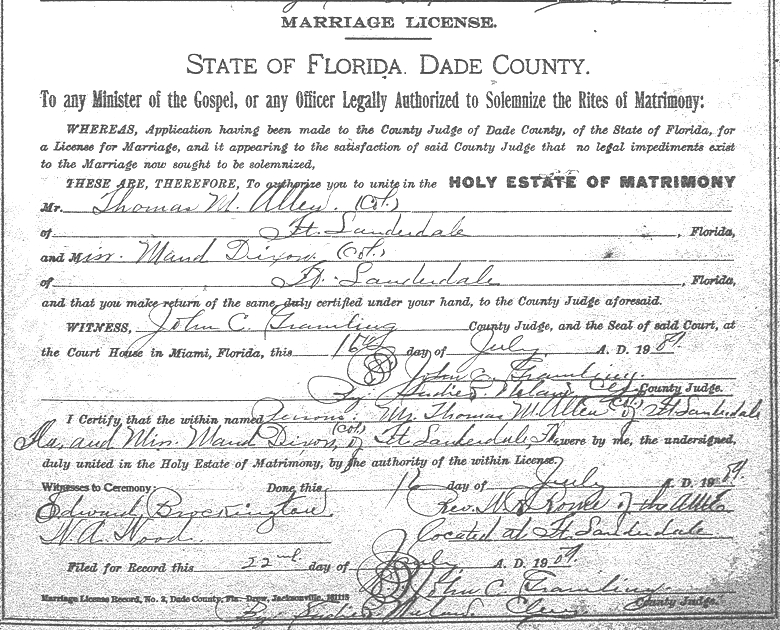 MARRIAGE LICENSE.
STATE OF FLORIDA. DADE COUNTY.
To any Minister of the Gospel, or any Officer Legally Authorized to Solemnize the Rites of Matrimony:
WHEREAS, Application having been made to the County Judge of Dade County, of the State of Florida, for
a License for Marriage, and it appearing to the satisfaction of said County Judge that no legal impediments exist
to the Marriage now sought to be solemnized,
THESE ARE, THEREFORE, To authorize you to unite in the HOLY ESTATE OF MATRIMONY
Mr. Thomas M. Allen. (Col.)
of Ft. Lauderdale, Florida,
and Miss. Maud Dixon. (Col.)
of Ft. Lauderdale, Florida,
and that you make return of the same, duly certified under your hand, to the County Judge aforesaid.
WITNESS, John C. Gramling County Judge, and the Seal of said Court, at
the Court House in Miami, Florida, this 16th day of July A. D. 1909.
John C. Gramling.
By: County Judge.
I Certify, that the within named Persons. Mr. Thomas M. Allen (Col.) of Ft. Lauderdale
Fla, and Miss. Maud Dixon, (Col.) of Ft. Lauderdale, Fla were by me, the undersigned,
duly united in the Holy Estate of Matrimony, by the authority of the within License.
Witnesses to Ceremony: Done, this 16 day of July A. D. 1909.
Edward Brockington. Rev. of the
W. A. Wood. located at Ft. Lauderdale
Filed for Record this 22nd day of July A. D. 1909.
John C. Gramling
Marriage License Record, No. 2, Dade County, Fla. Drew, Jacksonville, County Judge.
By